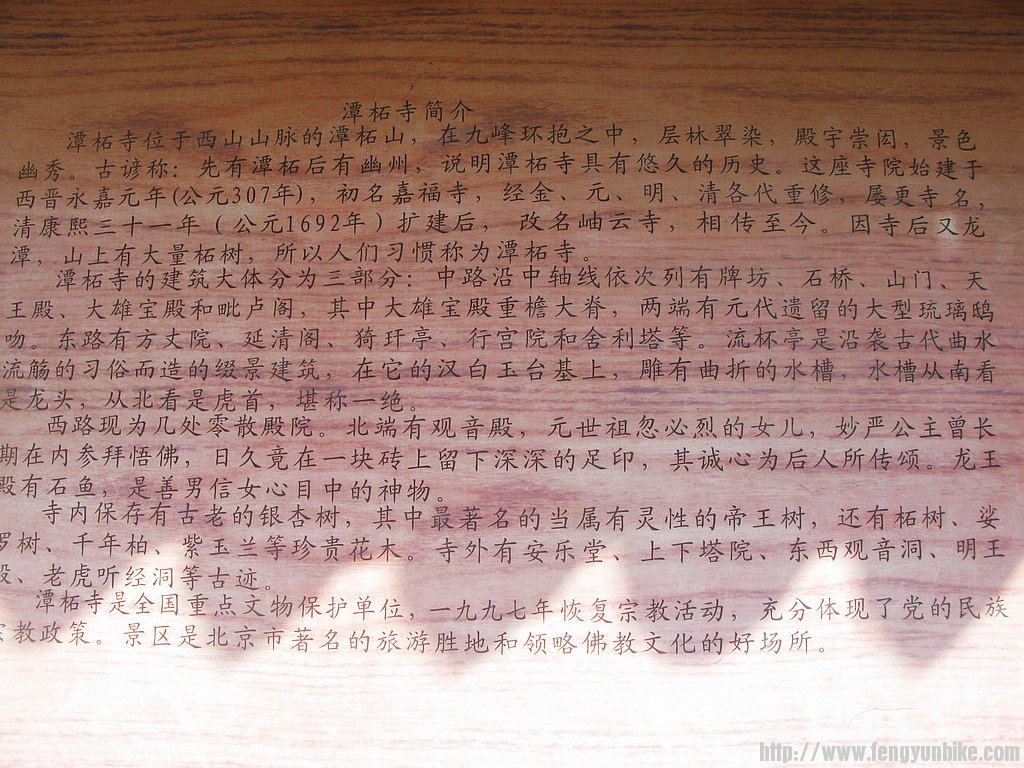 潭柘寺简介
潭柘寺位于西山山脉的潭柘山，在九峰环抱之中，层林翠染，殿宇崇闳，景色
幽秀。古谚称：先有潭柘后有幽州，说明潭柘寺具有悠久的历史。这座寺院始建于
西晋永嘉元年(公元307年)，初名嘉福寺，经金、元、明、清各代重修，屡更寺名，
清康熙三十一年（公元1692年）扩建后，改名岫云寺，相传至今。因寺后又龙
潭，山上有大量柘树，所以人们习惯称为潭柘寺。
潭柘寺的建筑大体分为三部分：中路沿中轴线依次列有牌坊、石桥、山门、天
王殿、大雄宝殿和毗卢阁，其中大雄宝殿重檐大脊，两端有元代遗留的大型琉璃鸱
吻。东路有方丈院、延清阁、猗玕亭、行宫院和舍利塔等。流杯亭是沿袭古代曲水
流觞的习俗而造的缀景建筑，在它的汉白玉台基上，雕有曲折的水槽，水槽从南看
是龙头，从北看是虎首，堪称一绝。
西路现为几处零散殿院。北端有观音殿，元世祖忽必烈的女儿，妙严公主曾长
期在内参拜悟佛，日久竟在一块砖上留下深深的足印，其诚心为后人所传颂。龙王
殿有石鱼，是善男信女心目中的神物。
寺内保存有古老的银杏树，其中最著名的当属有灵性的帝王树，还有柘树、娑
罗树、千年柏、紫玉兰等珍贵花木。寺外有安乐堂、上下塔院、东西观音洞、明王
殿、老虎听经洞等古迹。
潭柘寺是全国重点文物保护单位，一九九七年恢复宗教活动，充分体现了党的民族
宗教政策。景区是北京市著名的旅游胜地和领略佛教文化的好场所。
http://www.fengyunbike.com